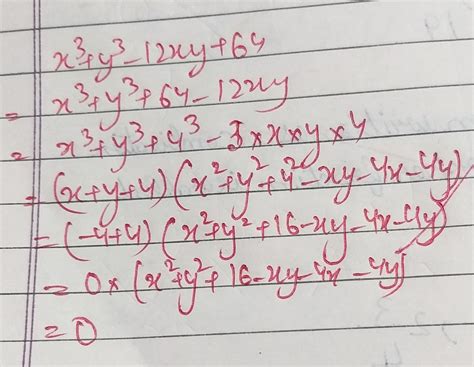 x³+y³-12xy+64
= x³+y³+64-12xy
= x³+y³+4³-3×x×y×4
= (x+y+4)(x²+y²+4²-xy-4x-4y)
= (-4+4)(x²+y²+16-xy-4x-4y)
= 0×(x²+y²+16-xy-4x-4y)
= 0